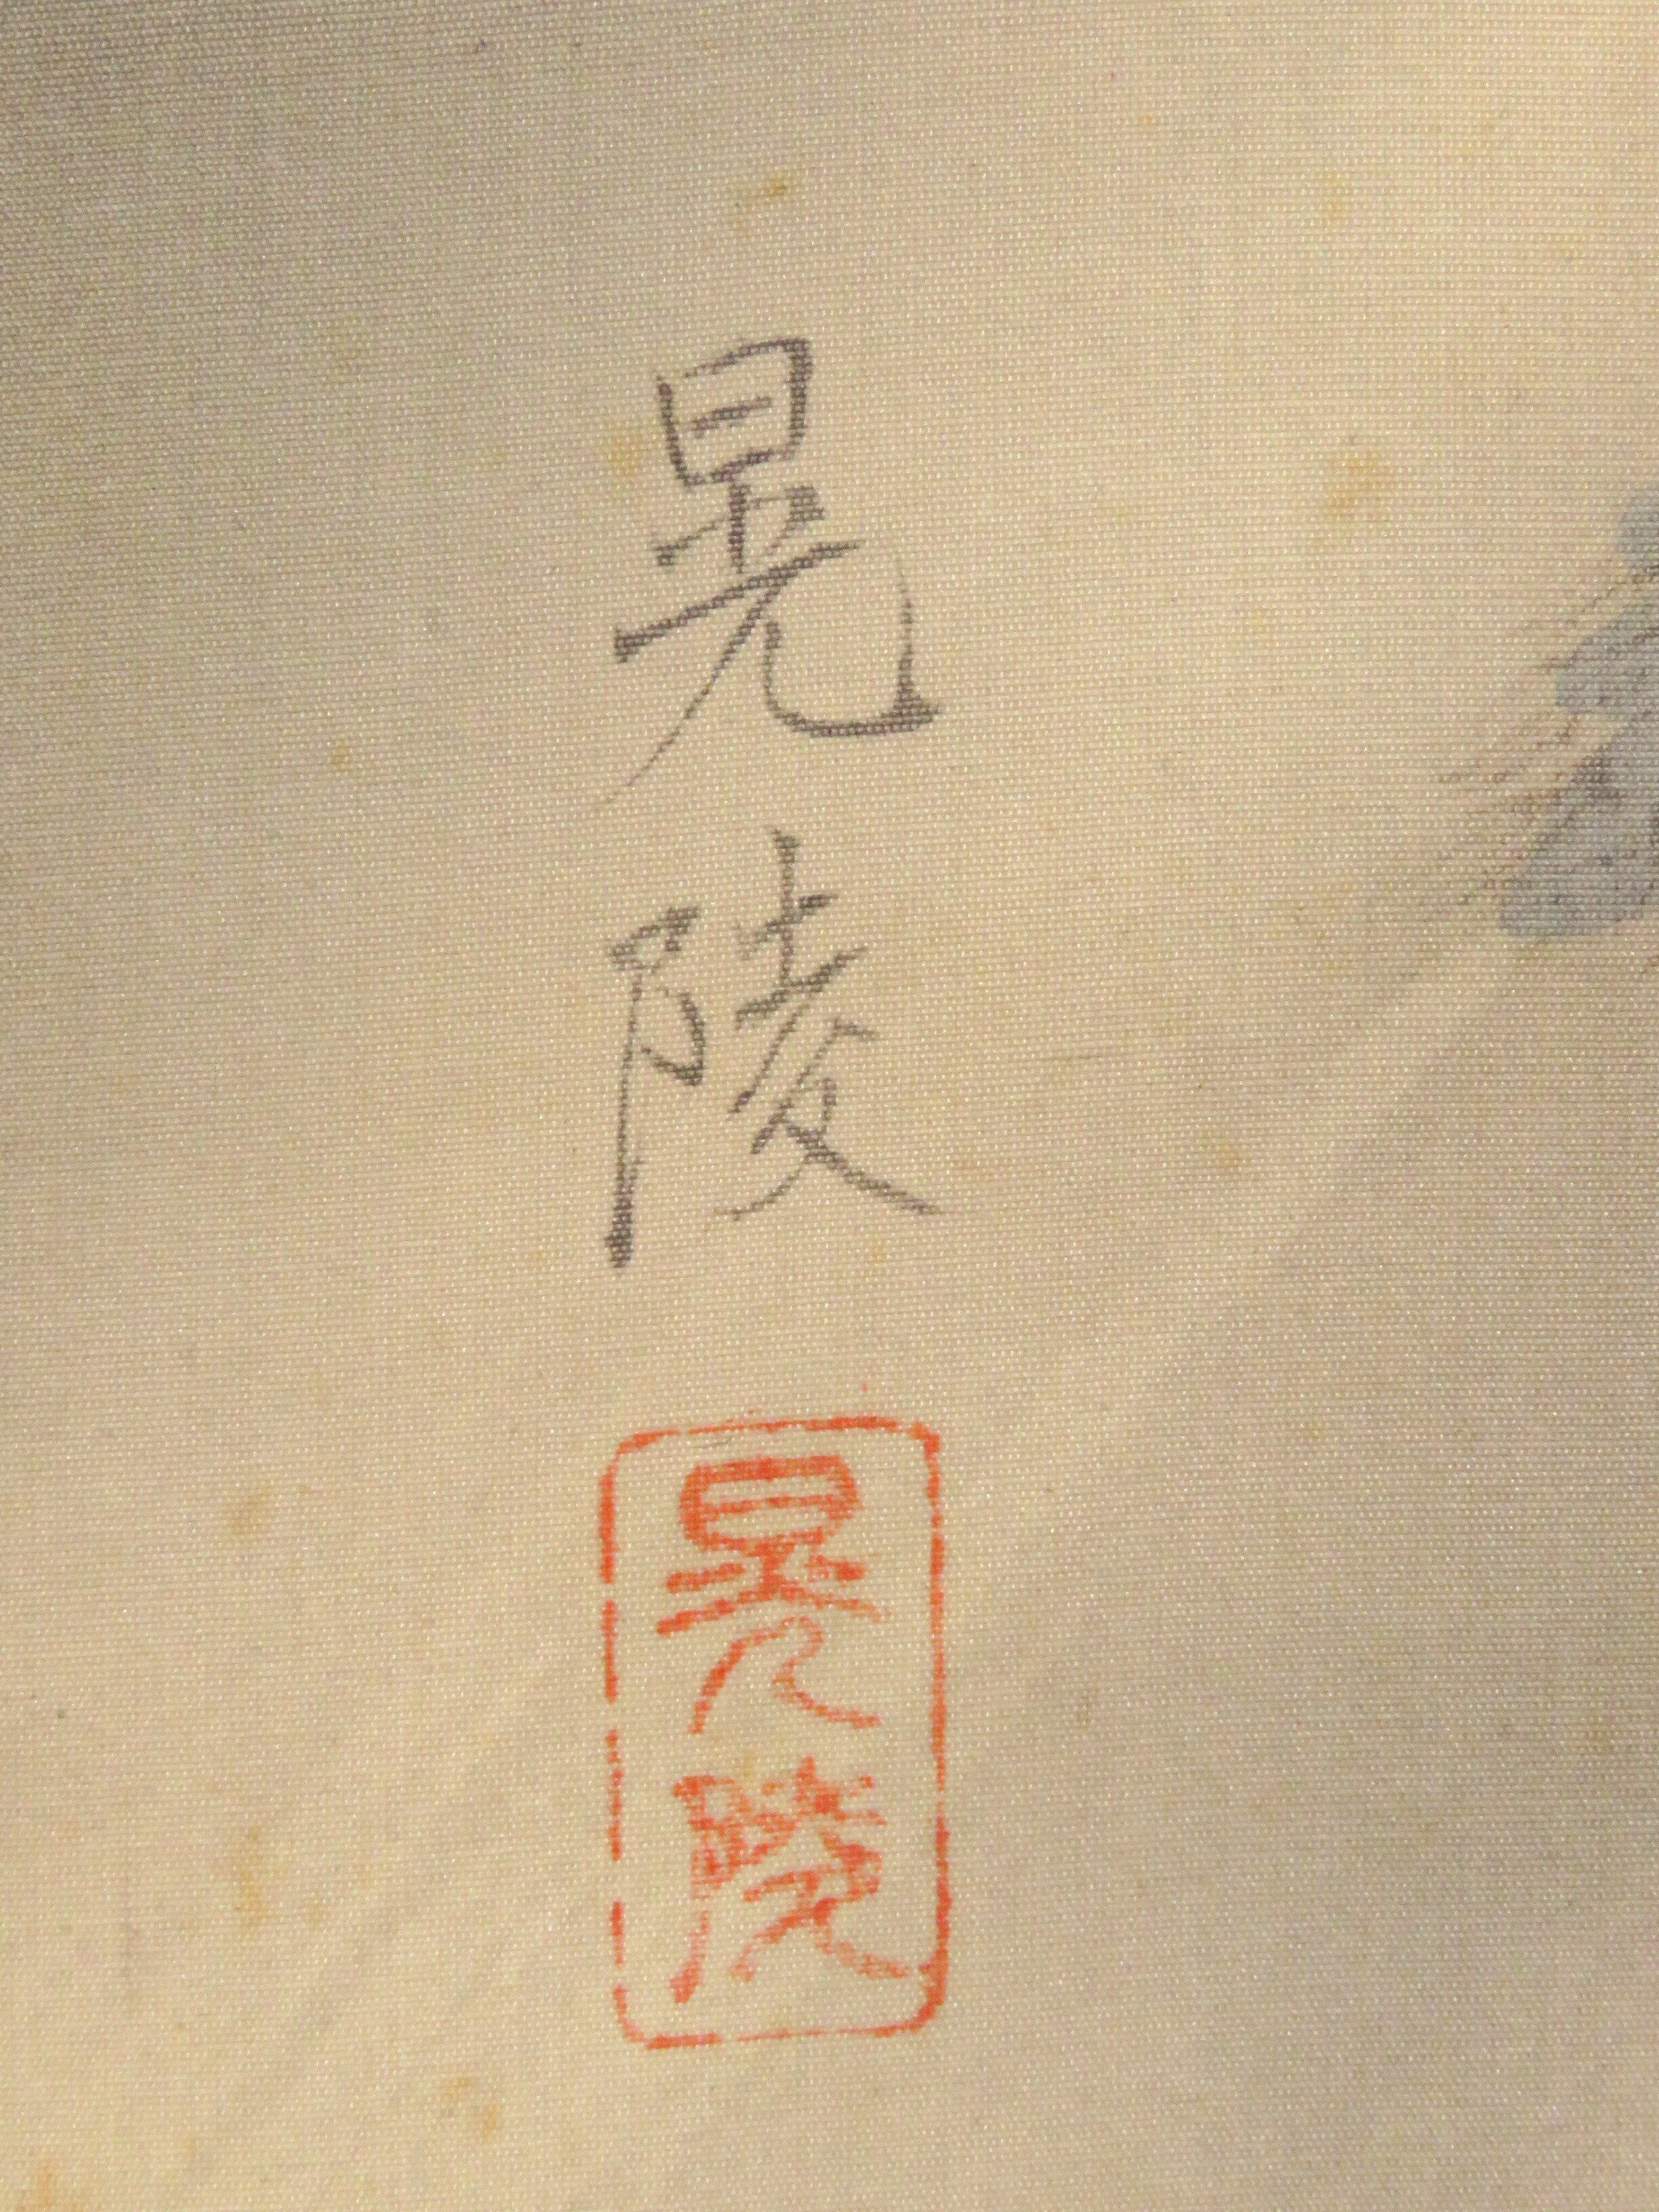 晃陵
晃陵